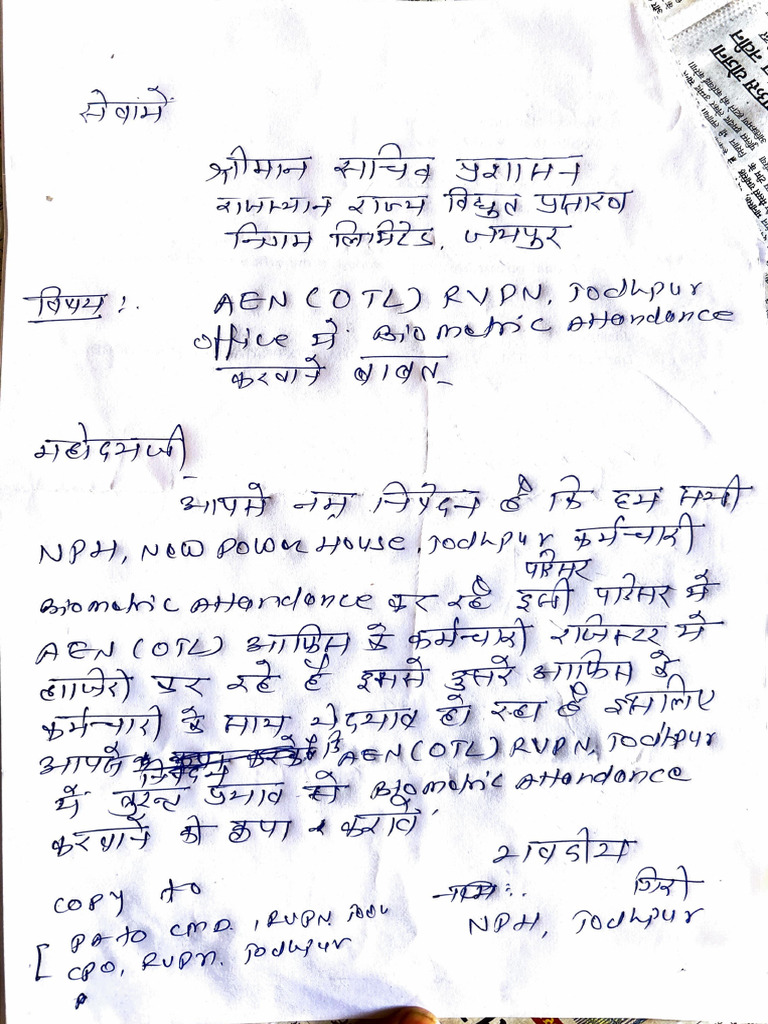 सेवामें
श्रीमान सचिव प्रशासन
राजस्थान राज्य विद्युत प्रसारण
निगम लिमिटेड, जयपुर
विषय :. AEN (OTL) RVPN, Jodhpur
office में Biometric Attendance
करवाने बाबत
महोदयजी
आपसे नम्र निवेदन है कि हम सभी
NPH, New Power House, Jodhpur कर्मचारी
परिसर
Biometric Attendance कर रहे है इसी परिसर में
AEN (OTL) आफिस के कर्मचारी रजिस्टर में
हाजिरी कर रहे है इससे दुसरे आफिस के
कर्मचारी के साथ भेदभाव हो रहा है इसलिए
आपसे निवेदन है कि AEN (OTL) RVPN, Jodhpur
में तुरन्त प्रभाव से Biometric Attendance
करवाने की कृपा करावें
भवदीय
COPY to
PA to CMD, RVPN
CPO, RVPN. Jodhpur
NPH, Jodhpur